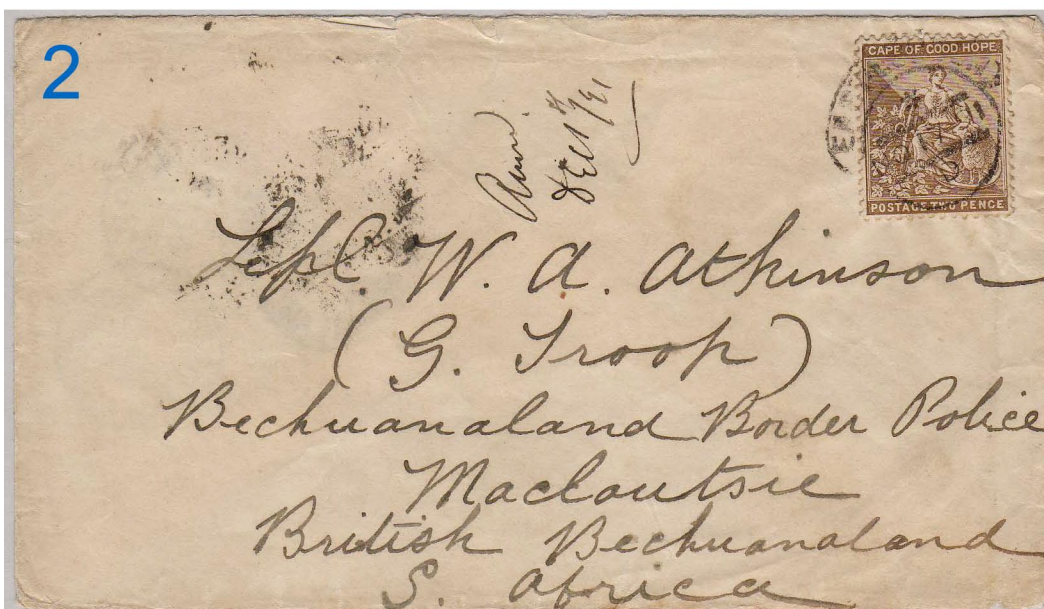 2
CAPE OF GOOD HOPE
POSTAGE TWO PENCE
W. A. Atkinson
(G. Troop)
Bechuanaland Border Police
Macloutsie
British Bechuanaland
S. Africa